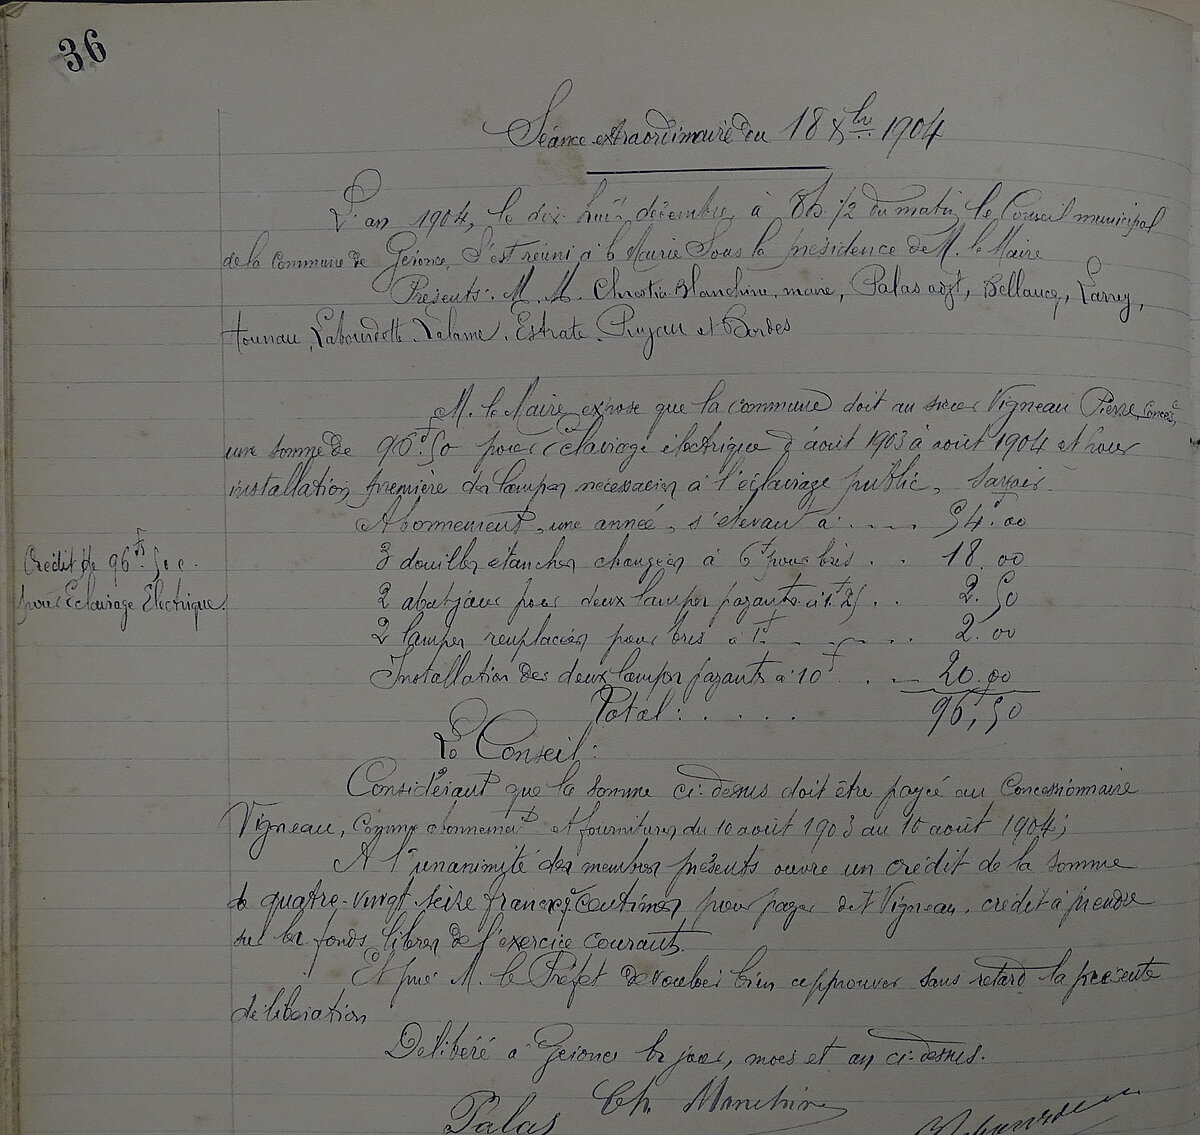 36
Séance extraordinaire du 18 Xbre 1904
L'an 1904, le dix huit décembre, à 8h. 1/2 du matin le Conseil municipal
de la Commune de Géronce, s'est réuni à la Mairie sous la présidence de M. le Maire
Présents: M. M. Chrestia Blanchine, maire, Palas adjt, Bellaucq, Larry,
Tounau, Labourdette, Lalanne, Estrate, Puyau et Bordes
M. le Maire expose que la commune doit au sieur Vigneau Pierre,
une somme de 96f.50 pour éclairage électrique d'août 1903 à août 1904 et pour
installation première des lampes nécessaires à l'éclairage public, savoir.
Abonnement, une année, s'élevant à .... 54f.00
3 douilles étanches changées à 6f pour bris . . 18.00
2 abatjour pour deux lampes payantes à 1f.25 . . 2.50
2 lampes remplacées pour bris à 1f. . . . . 2.00
Installation des deux lampes payantes à 10f . . . 20.00
Total: . . . . . 96f,50
Crédit de 96f.50c.
pour Eclairage Electrique.
Le Conseil:
Considérant que la somme ci-dessus doit être payée au Concessionnaire
Vigneau, comme abonnement et fournitures du 10 août 1903 au 10 août 1904;
A l'unanimité des membres présents ouvre un crédit de la somme
de quatre-vingt seize francs centimes pour payer dit Vigneau, crédit à prendre
sur les fonds libres de l'exercice courant.
Et prie M. le Préfet de vouloir bien approuver sans retard la présente
délibération
Délibéré à Géronce les jour, mois et an ci-dessus.
Palas